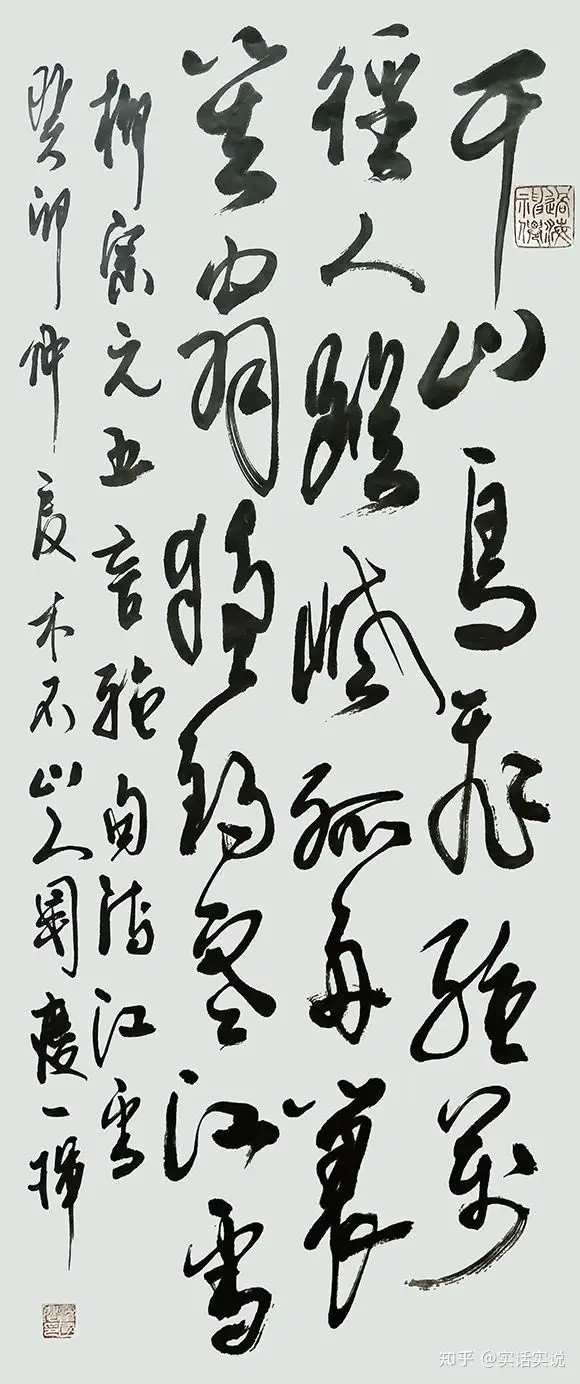 千山鳥飛絕萬
徑人蹤滅孤舟蓑
笠翁獨釣寒江雪
柳宗元五言絕句詩江雪
癸卯仲夏木石山人國慶一揮
知乎 @实话实说